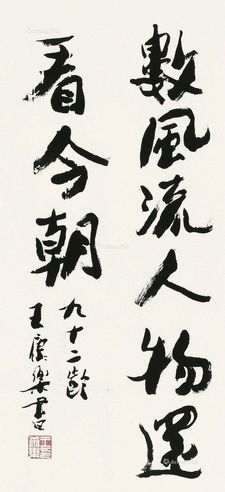 數風流人物還
看今朝
九十二齡
王康樂書